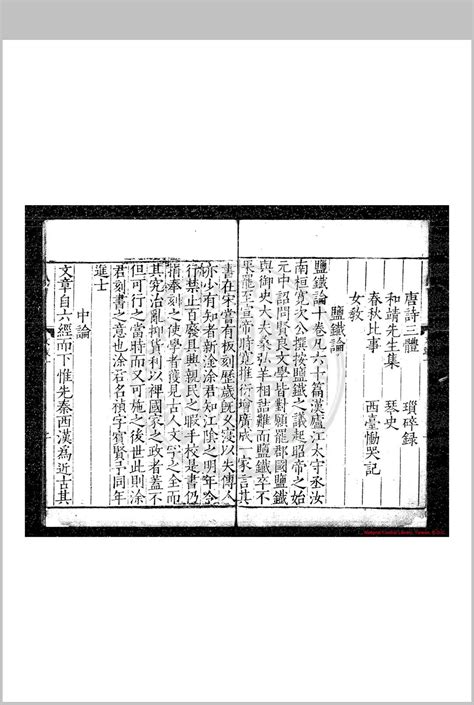 唐詩三體　瑣碎録
和靖先生集　琴史
春秋比事　西臺慟哭記
女敎
鹽鐵論
鹽鐵論十卷凡六十篇漢廬江太守丞汝
南桓寛次公撰按鹽鐵之議起昭帝之始
元中詔問賢良文學皆對願罷郡國鹽鐵
與御史大夫桑弘羊相詰難而鹽鐵卒不
果罷至宣帝時寛推衍增廣成一家言其
書在宋嘗有板刻歷歲旣久寖以失傳人
亦少有知者新淦涂君知江陰之明年令
行禁止百廢具興親民之暇手校是書仍
捐奉刻之使學者獲見古人文字之全而
其究治亂抑貨利以裨國家之政者蓋不
但可行之當時而又可施之後世此則涂
君刻書之意也涂君名禎字賓賢予同年
進士
中論
文章自六經而下惟先秦西漢爲近古其
National Central Library, Taiwan, R.O.C.